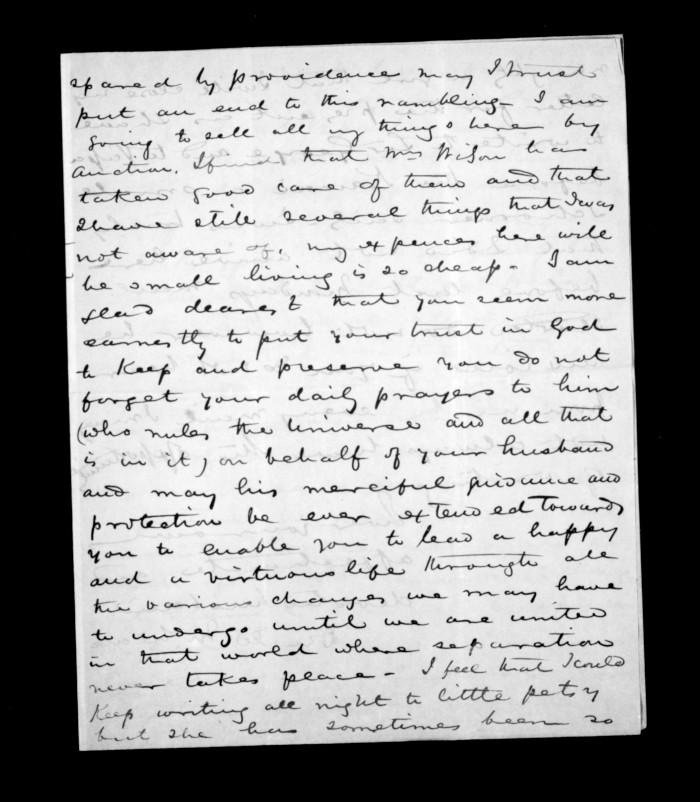 spared by providence may I trust
put an end to this rambling - I am
going to sell all my things here by
Auction. I find that Mrs Wilson has
taken good care of them and that
I have still several things that I was
not aware of, my expences here will
be small living is so cheap - I am
glad dearest that you seem more
earnestly to put your trust in God
to Keep and preserve you do not
forget your daily prayers to him
(who rules the Universe and all that
is in it) on behalf of your husband
and may his merciful guidance and
protection be ever extended towards
you to enable you to lead a happy
and a virtuous life through all
the various changes we may have
to undergo until we are united
in that world where separation
never takes place - I feel that I could
Keep writing all night to little petsy
but she has sometimes been so